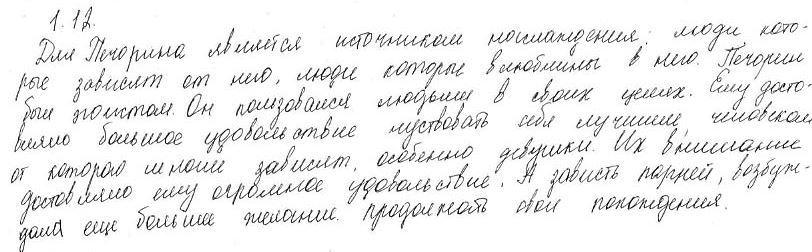 1.12.
Для Печорина является источником наслаждения: люди кото-
рые зависят от него, люди которые влюблины в него. Печорин
был эгоистом. Он пользовался людьми в своих целях. Ему досто-
вляло большое удовольствие чуствовать себя лучшим человеком
от которого многие зависят, особенно девушки. Их внимание
доставляло ему огромное удовольствие. А зависть парней, возбуж-
дала еще больше желание продолжать свои похождения.